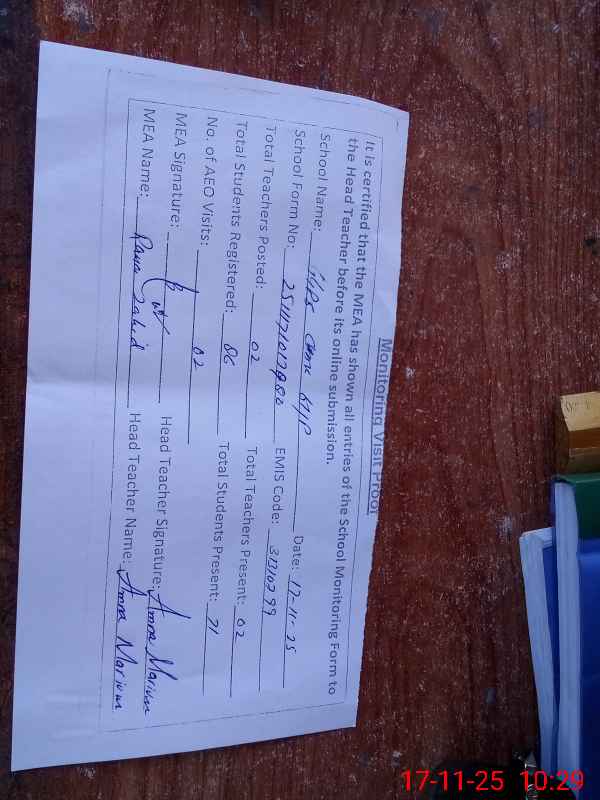 Monitoring Visit Proof
It is certified that the MEA has shown all entries of the School Monitoring Form to
the Head Teacher before its online submission.
School Name: 67/P Date: 17-11-25
School Form No: EMIS Code: 31310299
Total Teachers Posted: 02 Total Teachers Present: 02
Total Students Registered: 86 Total Students Present: 71
No. of AEO Visits: 02
MEA Signature: Head Teacher Signature: Amna Marium
MEA Name: Rana Zahid Head Teacher Name: Amna Marium
17-11-25 10:29